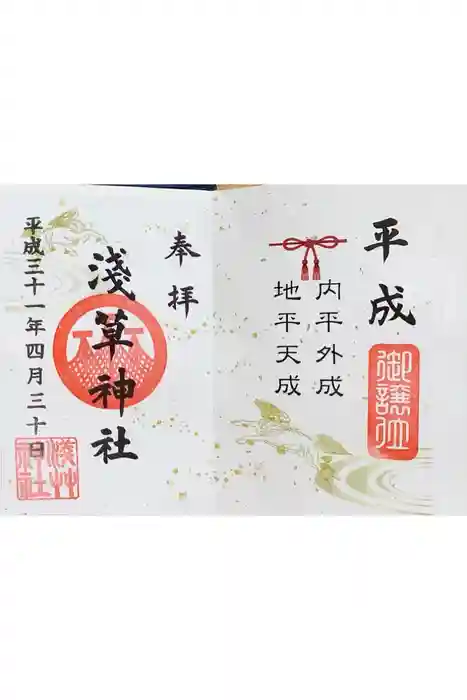 平成
御譲位
内平外成
地平天成
奉拝
淺草神社
平成三十一年四月三十日
淺草神社